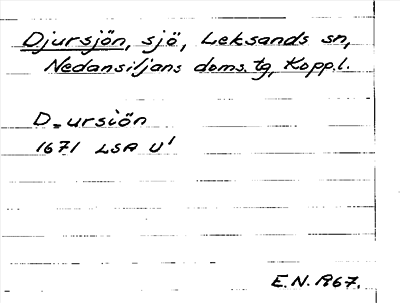 Djursjön, sjö, Leksands sn,
Nedansiljans doms. tg, Kopp. l.
D=ursiön
1671 LSA U'
E.N. 1967.